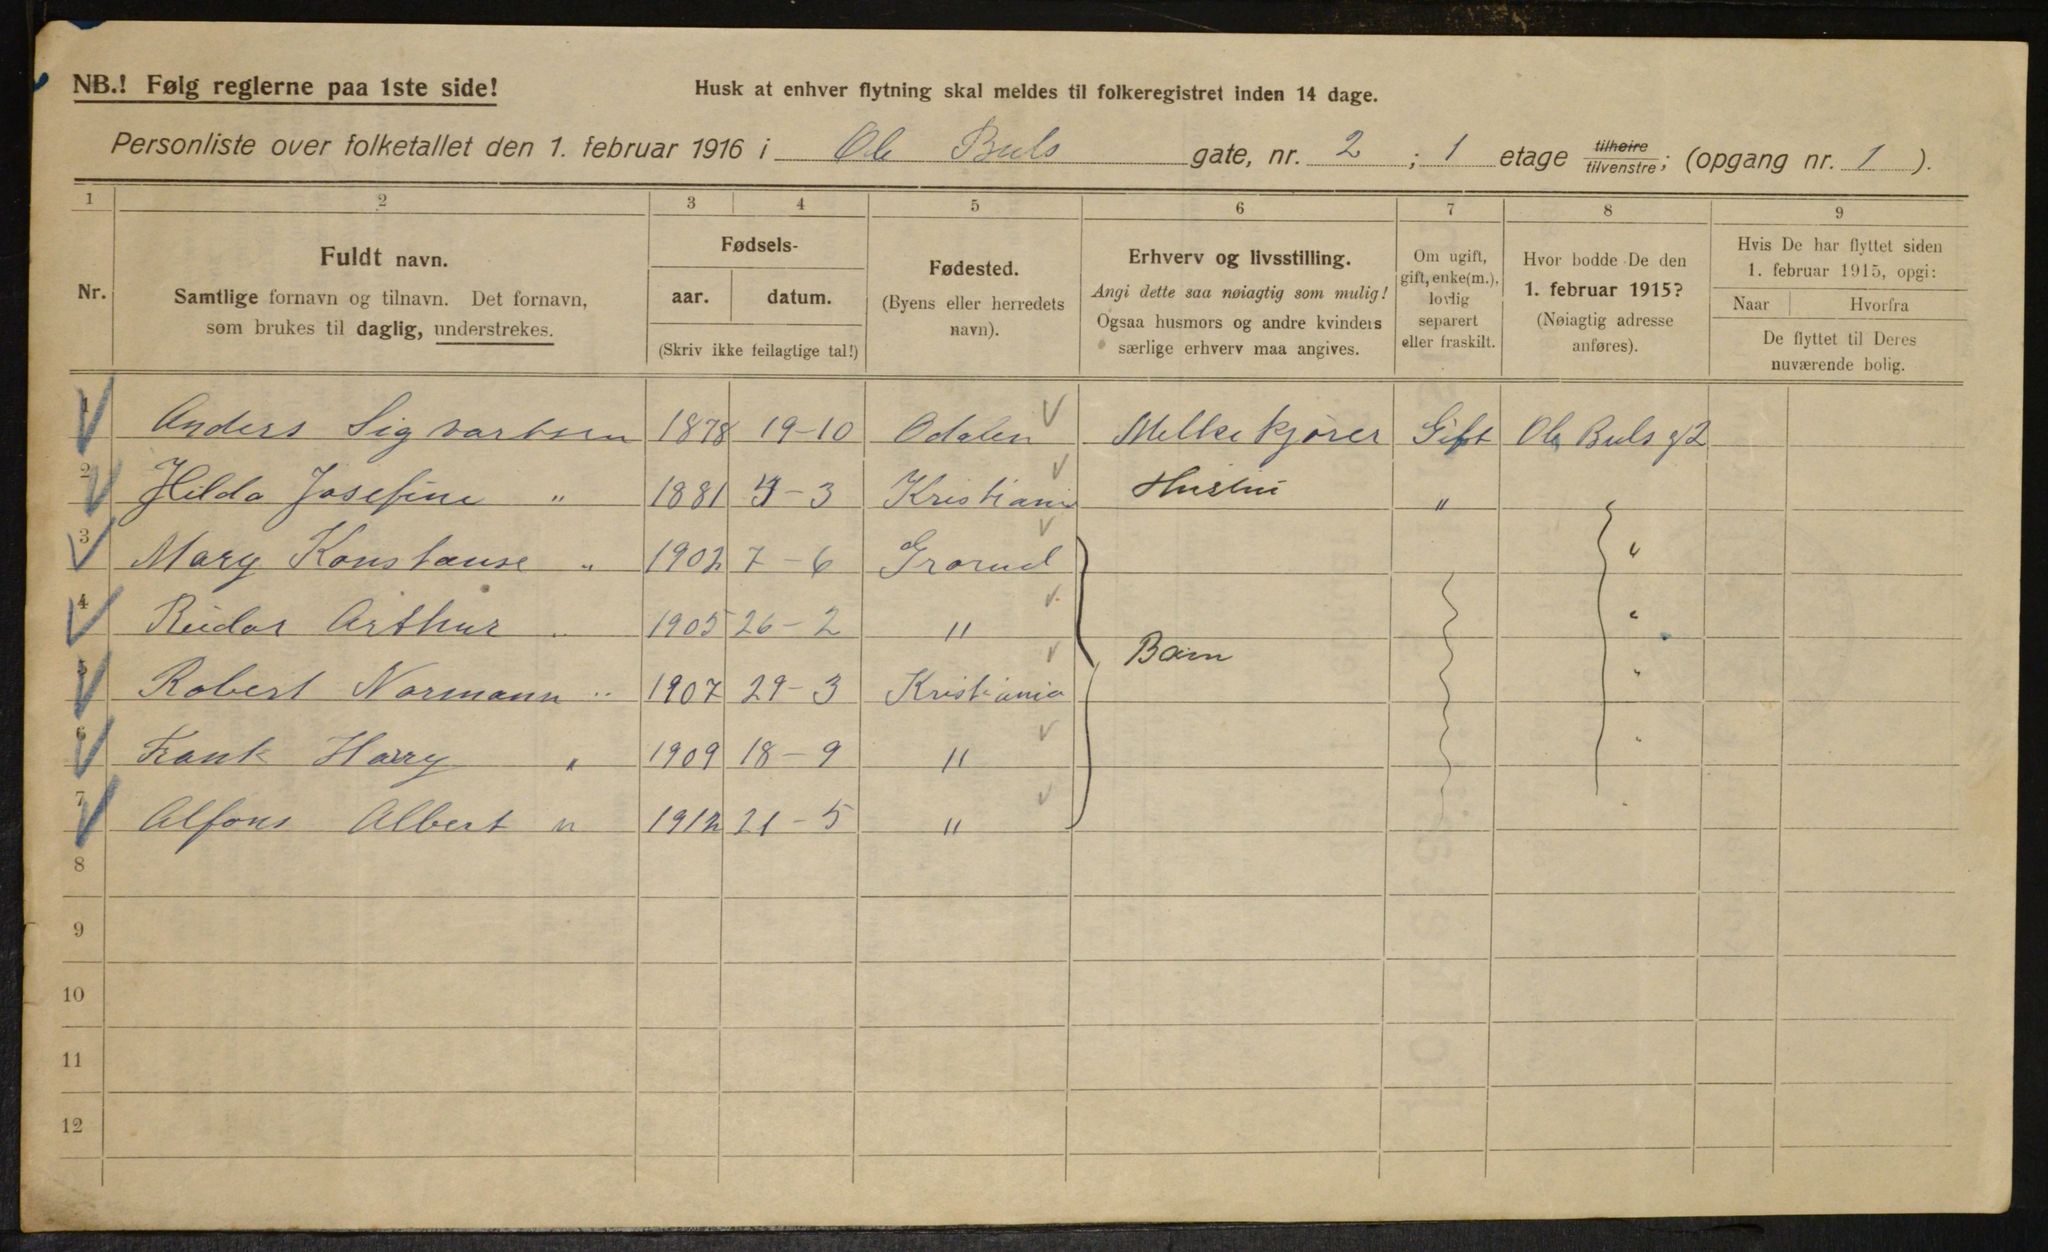 NB.! Følg reglerne paa 1ste side!
Husk at enhver flytning skal meldes til folkeregistret inden 14 dage.
Personliste over folketallet den 1. februar 1916 i Ole Buls gate, nr. 2 ; 1 etage tilhøire/tilvenstre; (opgang nr. 1 ).
1 2 3 4 5 6 7 8 9
Nr.
Fuldt navn.
Samtlige fornavn og tilnavn. Det fornavn,
som brukes til daglig, understrekes.
Fødsels-
aar. datum.
(Skriv ikke feilagtige tal!)
Fødested.
(Byens eller herredets
navn).
Erhverv og livsstilling.
Angi dette saa nøiagtig som mulig!
Ogsaa husmors og andre kvinders
særlige erhverv maa angives.
Om ugift,
gift, enke(m.),
lovlig
separert
eller fraskilt.
Hvor bodde De den
1. februar 1915?
(Nøiagtig adresse
anføres).
Hvis De har flyttet siden
1. februar 1915, opgi:
Naar Hvorfra
De flyttet til Deres
nuværende bolig.
1 Anders Sigvartsen 1878 19-10 Odalen Melkekjører Gift Ole Buls g 2
2 Hilda Josefine " 1881 - 3 Kristiania Hustru "
3 Mary Konstanse " 1902 7 - 6 Grorud "
4 Reidar Arthur " 1905 26 - 2 " "
Barn
5 Robert Normann " 1907 29 - 3 Kristiania "
6 Frank Harry " 1909 18 - 9 " "
7 Alfons Albert " 1912 21 - 5 " "
8
9
10
11
12